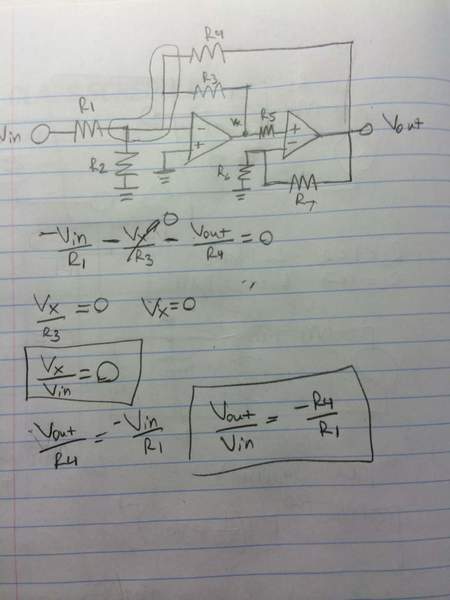 R4
R3
R1
Vin
R2
- +
Vx
R5
+ -
Vout
R6
R7
-Vin/R1 - Vx/R3 0 - Vout/R4 = 0
Vx/R3 = 0 Vx=0
Vx/Vin = 0
Vout/R4 = -Vin/R1
Vout/Vin = -R4/R1